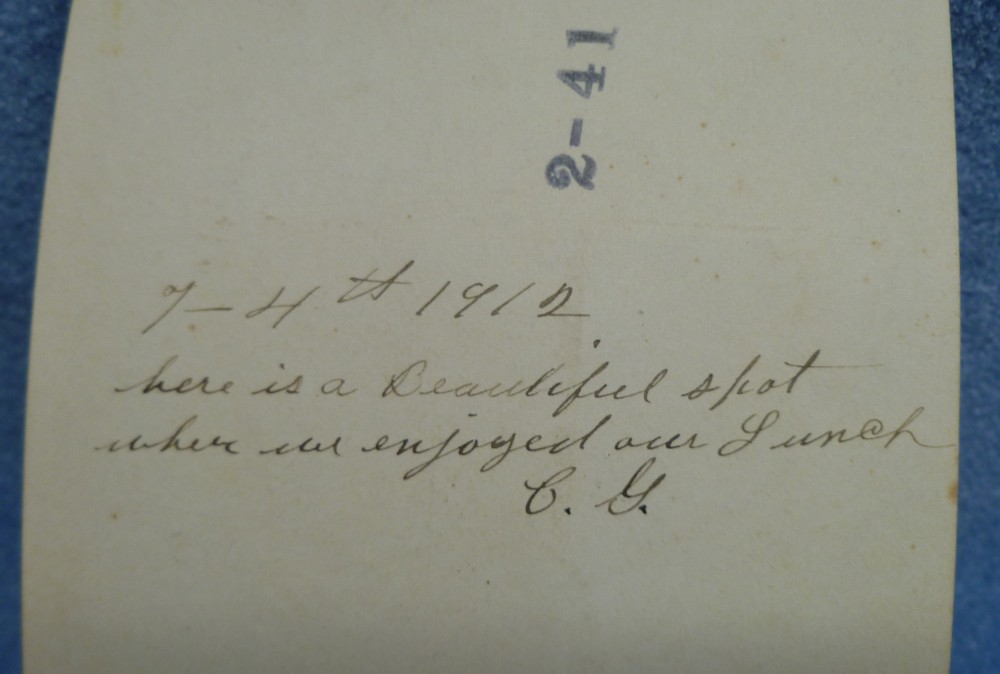 2-41
7-4th 1912
here is a Beautiful spot
where we enjoyed our Lunch
C. G.